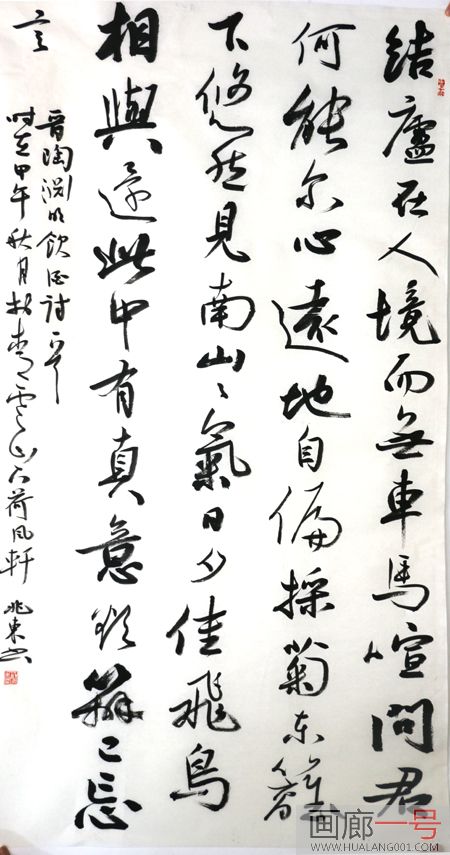 結廬在人境而無車馬喧問君
何能尔心遠地自偏採菊东籬
下悠然見南山〻氣日夕佳飛鳥
相與還此中有真意欲辨已忘
言
晋陶渊明飲酒詩一首
时在甲午秋月於青云山下荷风軒 兆东书
画廊一号
WWW.HUALANG001.COM